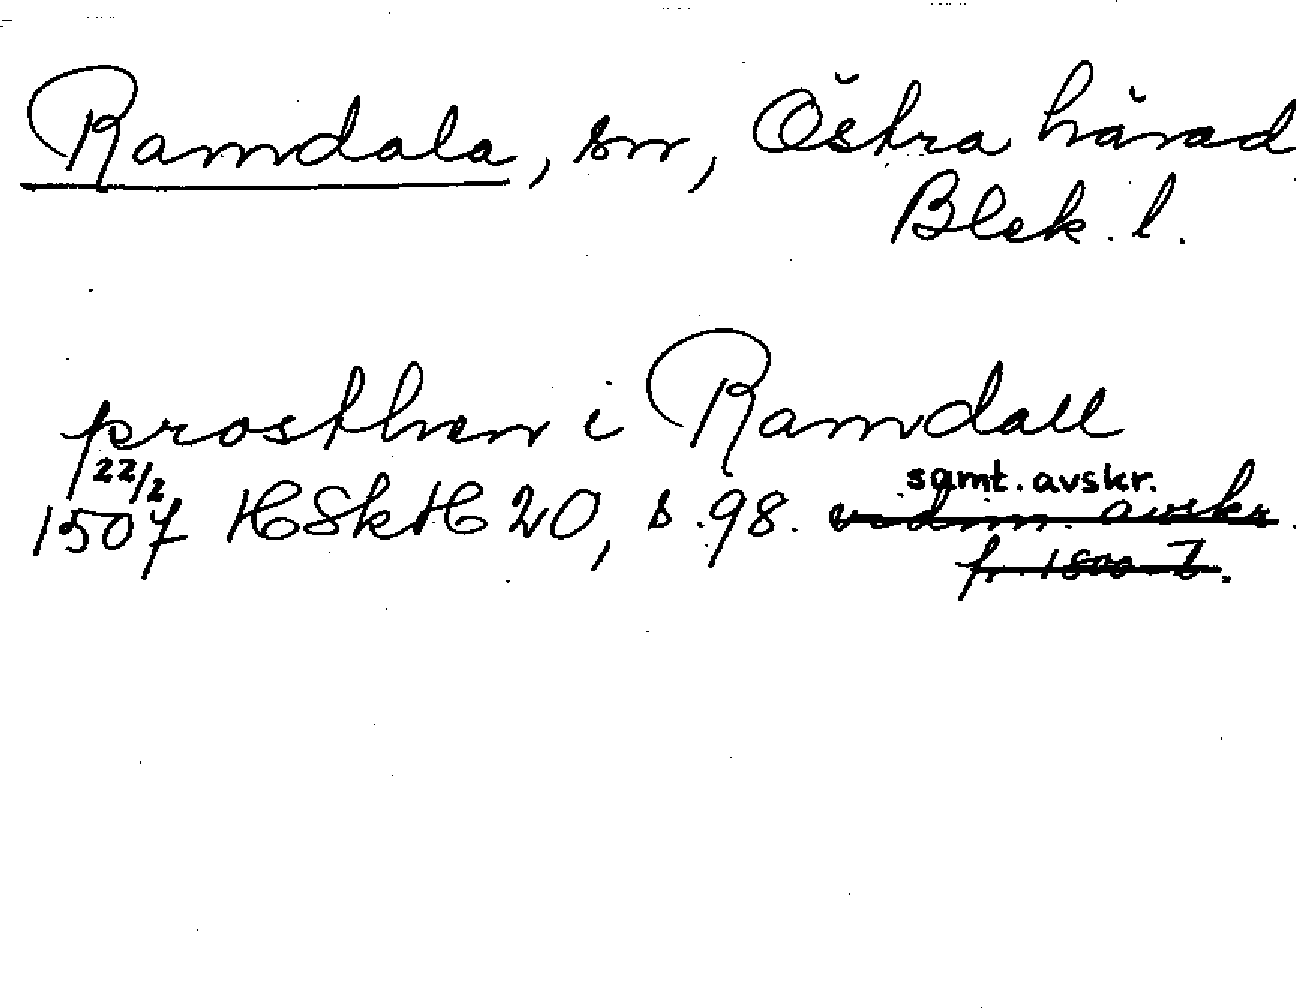 Ramdala, sn, Östra härad
Blek. l.
prosthen i Ramdall
22/2
samt. avskr.
1507 HSkH 20, s. 98. vidim. avskr.
fr. 1500-t.